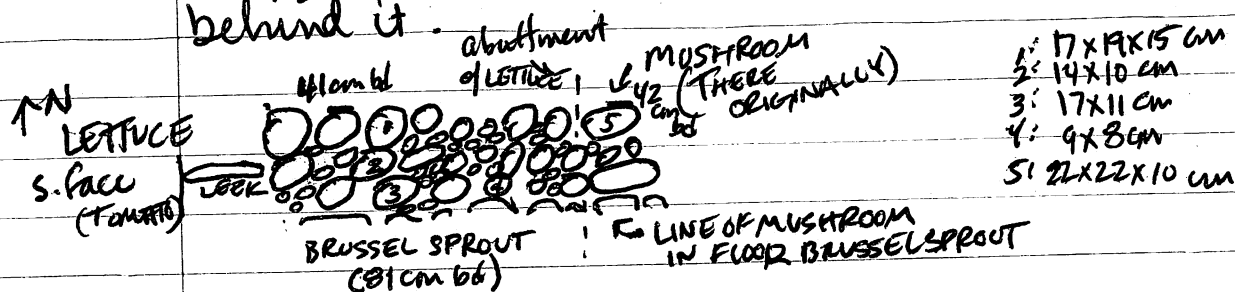 behind it.
abuttment
of LETTUCE
MUSHROOM
(THERE
ORIGINALLY)
41cm bd
42
cm
bd
↑N
LETTUCE
S. face
(TOMATO)
LEEK
1
2
3
4
5
BRUSSEL SPROUT
(81cm bd)
LINE OF MUSHROOM
IN FLOOR BRUSSELSPROUT
1: 17x19x15 cm
2: 14x10 cm
3: 17x11 cm
4: 9x8cm
5: 22x22x10 cm